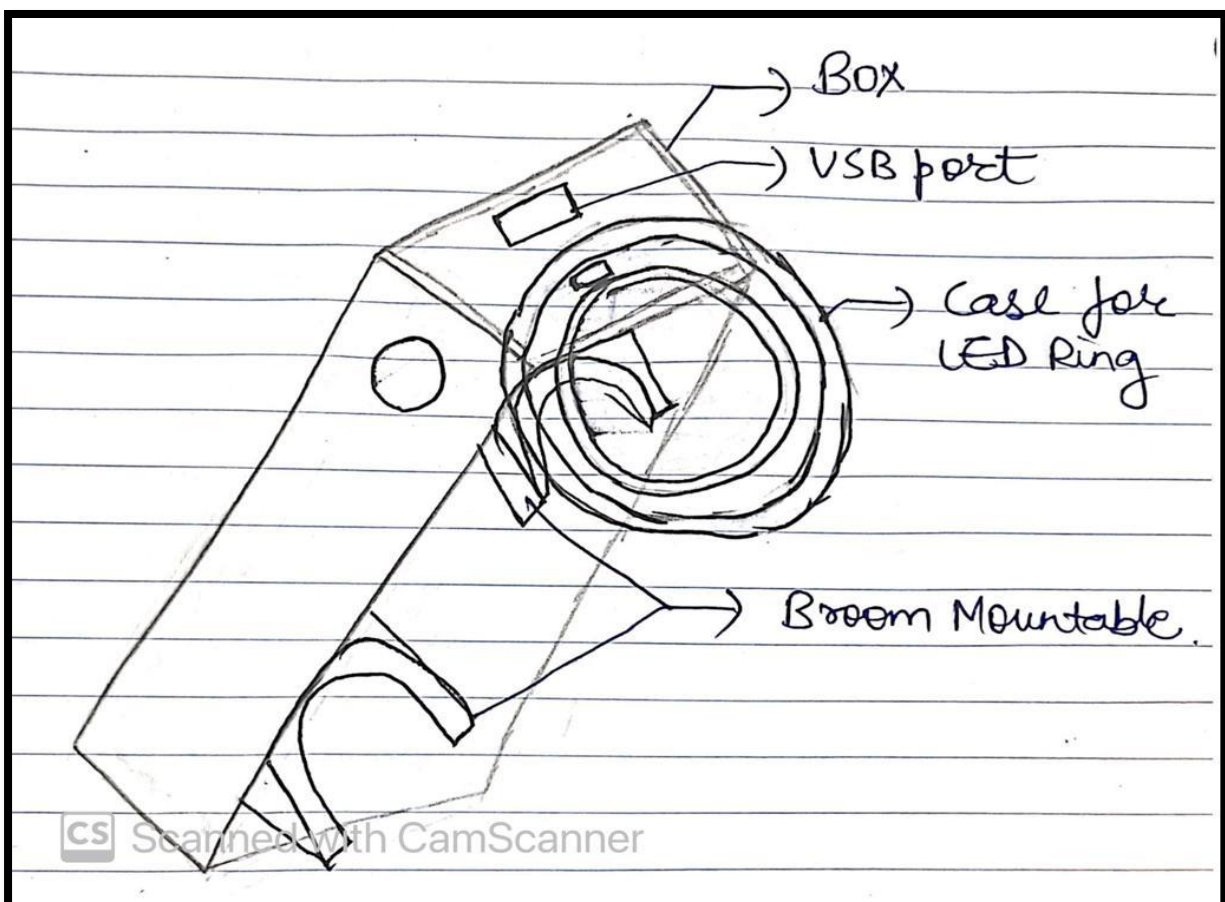 Box
USB port
Case for
LED Ring
Broom Mountable.
CS Scanned with CamScanner